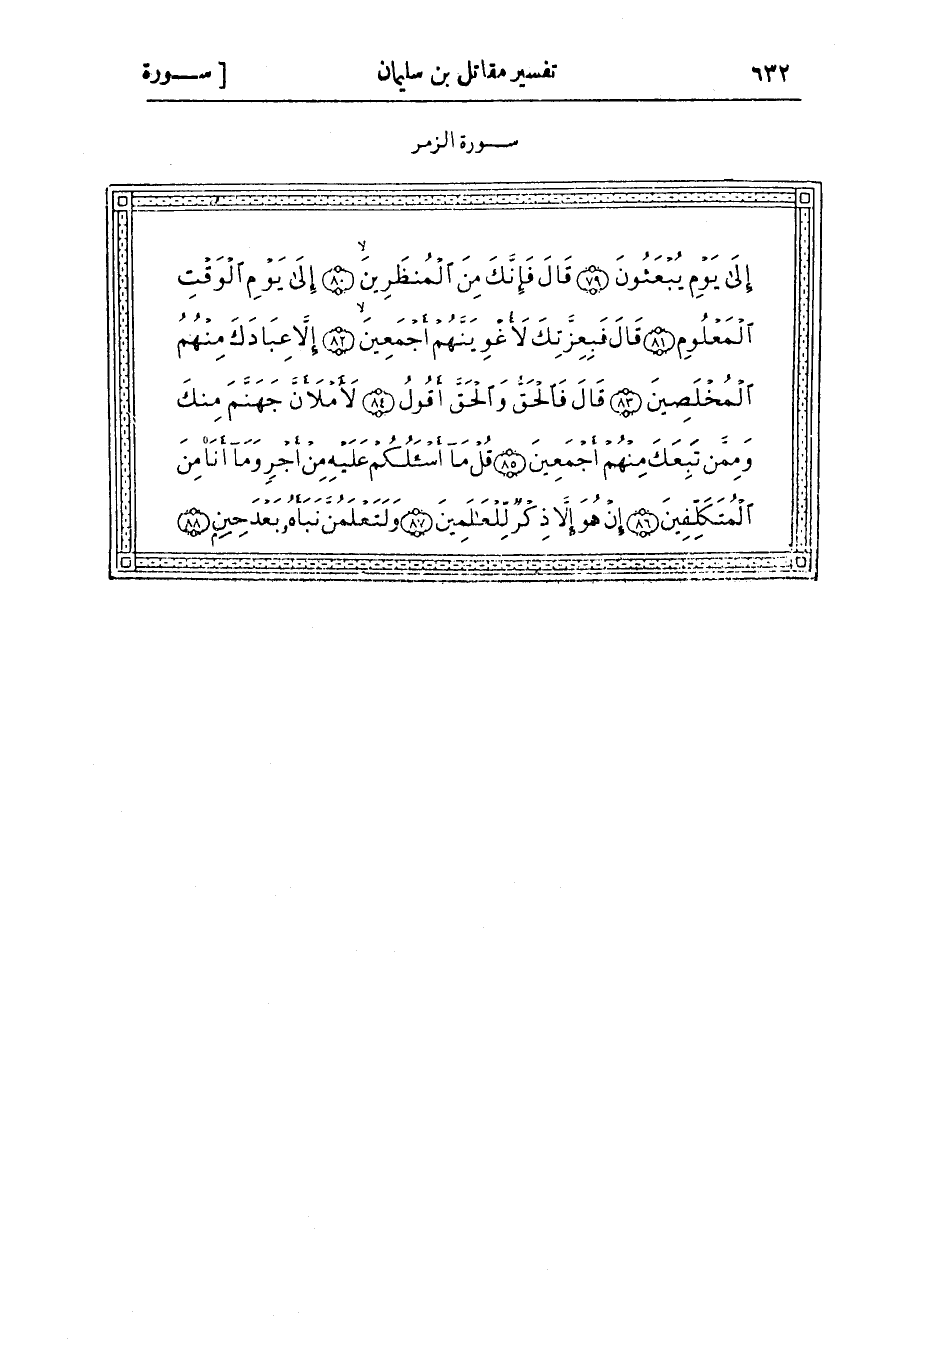 ٦٣٢ تفسير مقاتل بن سليمان [ ســورة
ســورة الزمر
إِلَىٰ يَوْمِ يُبْعَثُونَ ﴿٧٩﴾ قَالَ فَإِنَّكَ مِنَ ٱلْمُنظَرِينَ ﴿٨٠﴾ إِلَىٰ يَوْمِ ٱلْوَقْتِ
ٱلْمَعْلُومِ ﴿٨١﴾ قَالَ فَبِعِزَّتِكَ لَأُغْوِيَنَّهُمْ أَجْمَعِينَ ﴿٨٢﴾ إِلَّا عِبَادَكَ مِنْهُمُ
ٱلْمُخْلَصِينَ ﴿٨٣﴾ قَالَ فَٱلْحَقُّ وَٱلْحَقَّ أَقُولُ ﴿٨٤﴾ لَأَمْلَأَنَّ جَهَنَّمَ مِنكَ
وَمِمَّن تَبِعَكَ مِنْهُمْ أَجْمَعِينَ ﴿٨٥﴾ قُلْ مَآ أَسْـَٔلُكُمْ عَلَيْهِ مِنْ أَجْرٍ وَمَآ أَنَا۠ مِنَ
ٱلْمُتَكَلِّفِينَ ﴿٨٦﴾ إِنْ هُوَ إِلَّا ذِكْرٌ لِّلْعَـٰلَمِينَ ﴿٨٧﴾ وَلَتَعْلَمُنَّ نَبَأَهُۥ بَعْدَ حِينٍ ﴿٨٨﴾